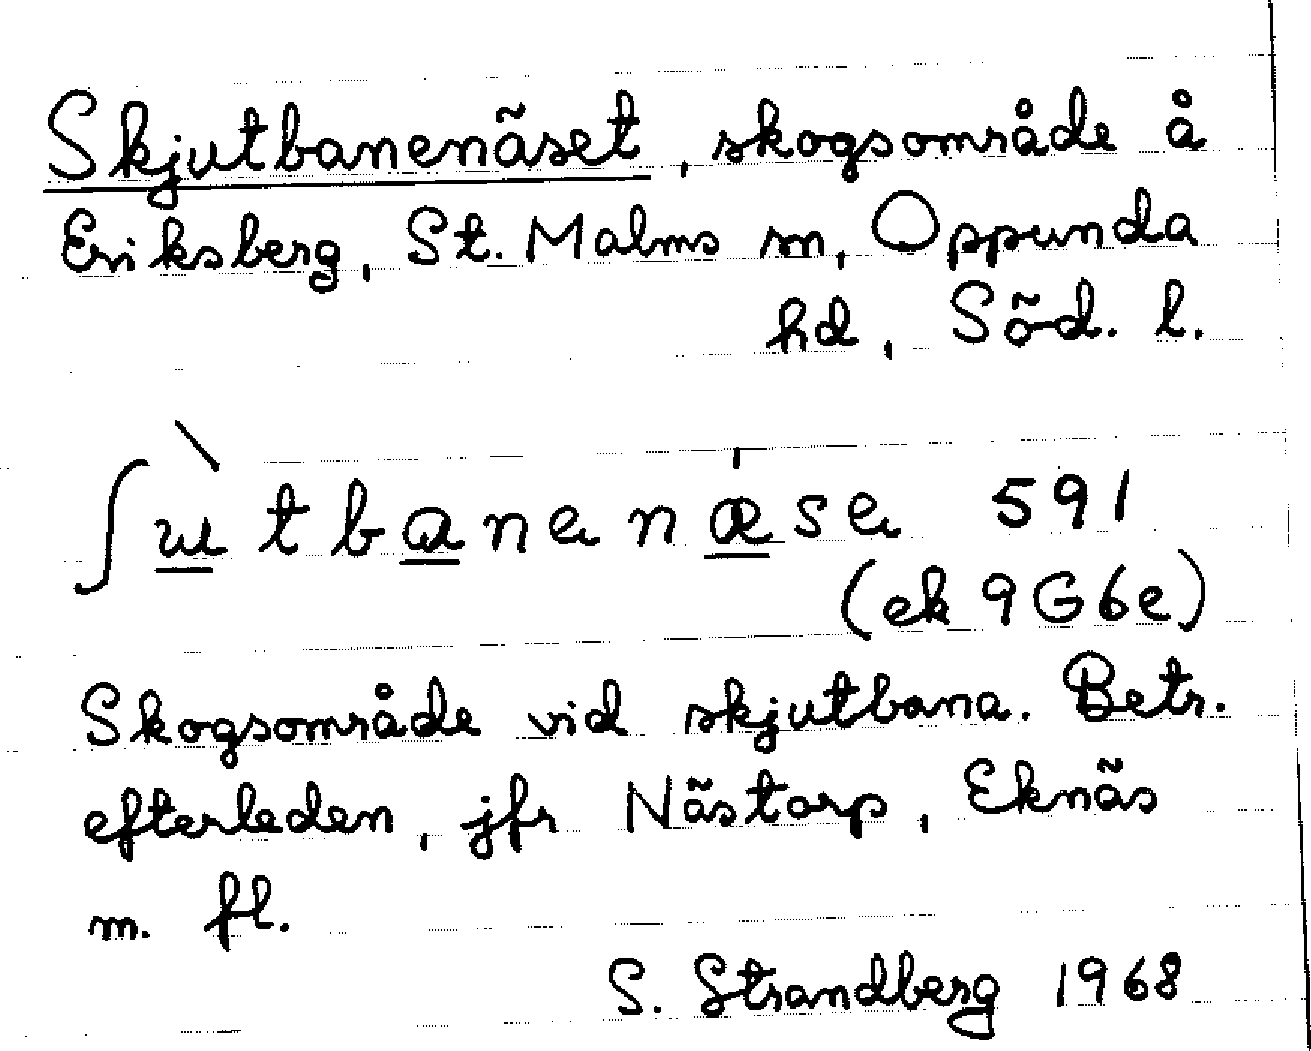 Skjutbanenäset, skogsområde å
Eriksberg, St. Malms sn, Oppunda
hd, Söd. l.
ʃùtbanenǽse 591
(ek 9G6e)
Skogsområde vid skjutbana. Betr.
efterleden, jfr Nästorp, Eknäs
m. fl.
S. Strandberg 1968